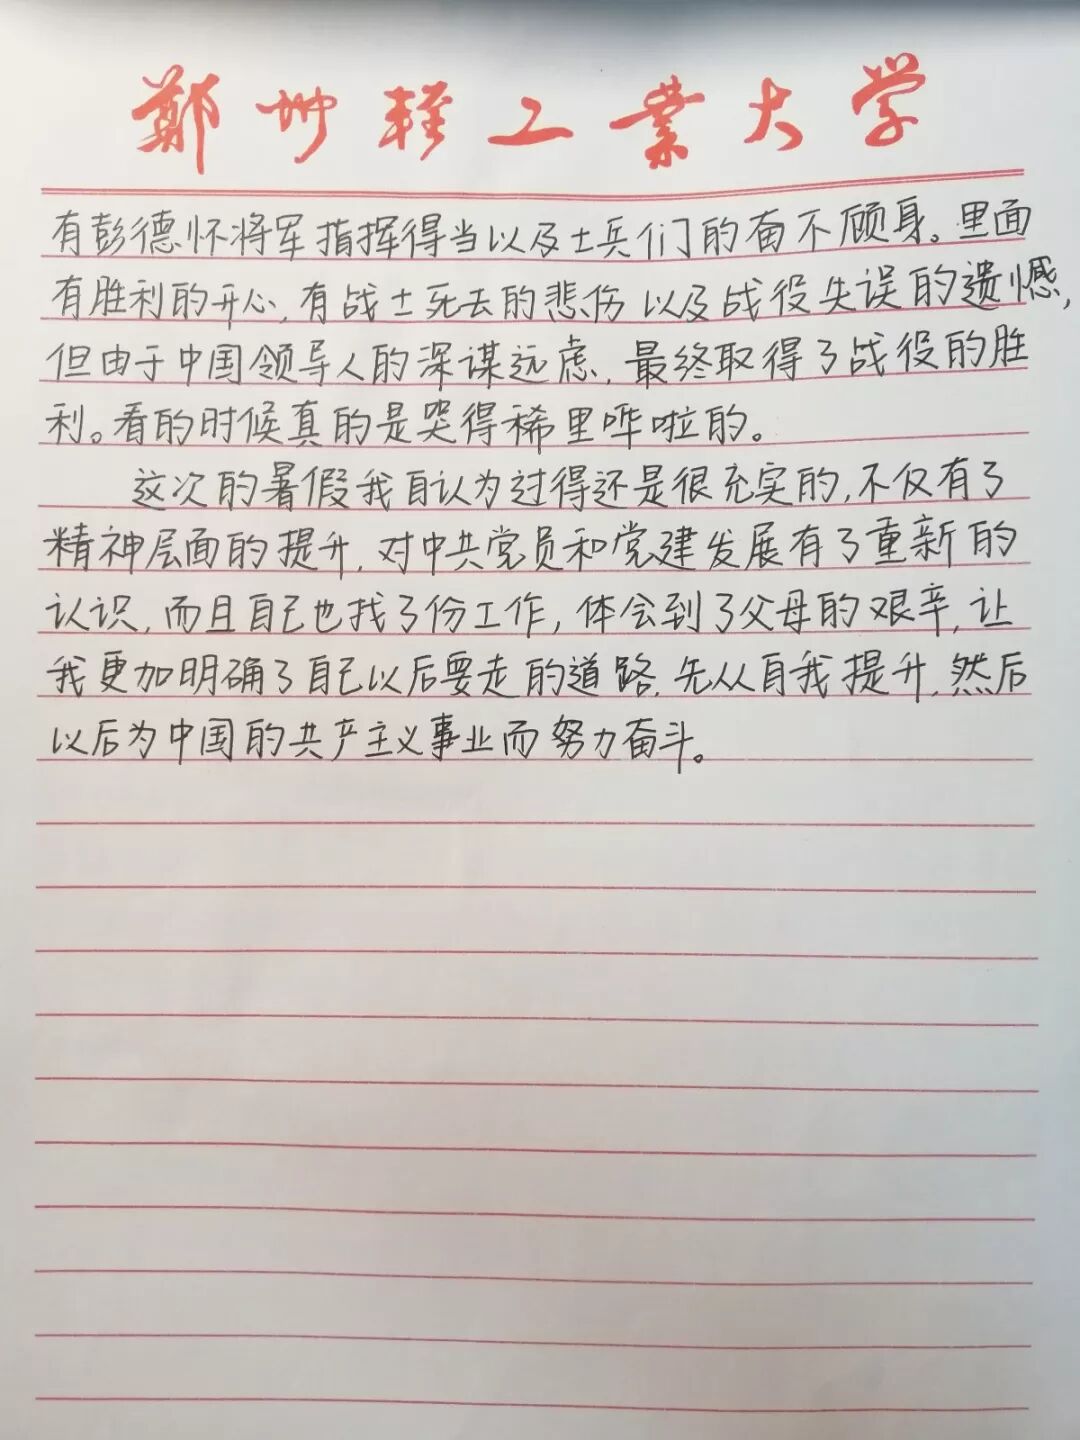 郑州轻工业大学
有彭德怀将军指挥得当以及士兵们的奋不顾身。里面
有胜利的开心,有战士死去的悲伤以及战役失误的遗憾,
但由于中国领导人的深谋远虑,最终取得了战役的胜
利。看的时候真的是哭得稀里哗啦的。
这次的暑假我自认为过得还是很充实的,不仅有了
精神层面的提升,对中共党员和党建发展有了重新的
认识,而且自己也找了份工作,体会到了父母的艰辛,让
我更加明确了自己以后要走的道路,先从自我提升,然后
以后为中国的共产主义事业而努力奋斗。